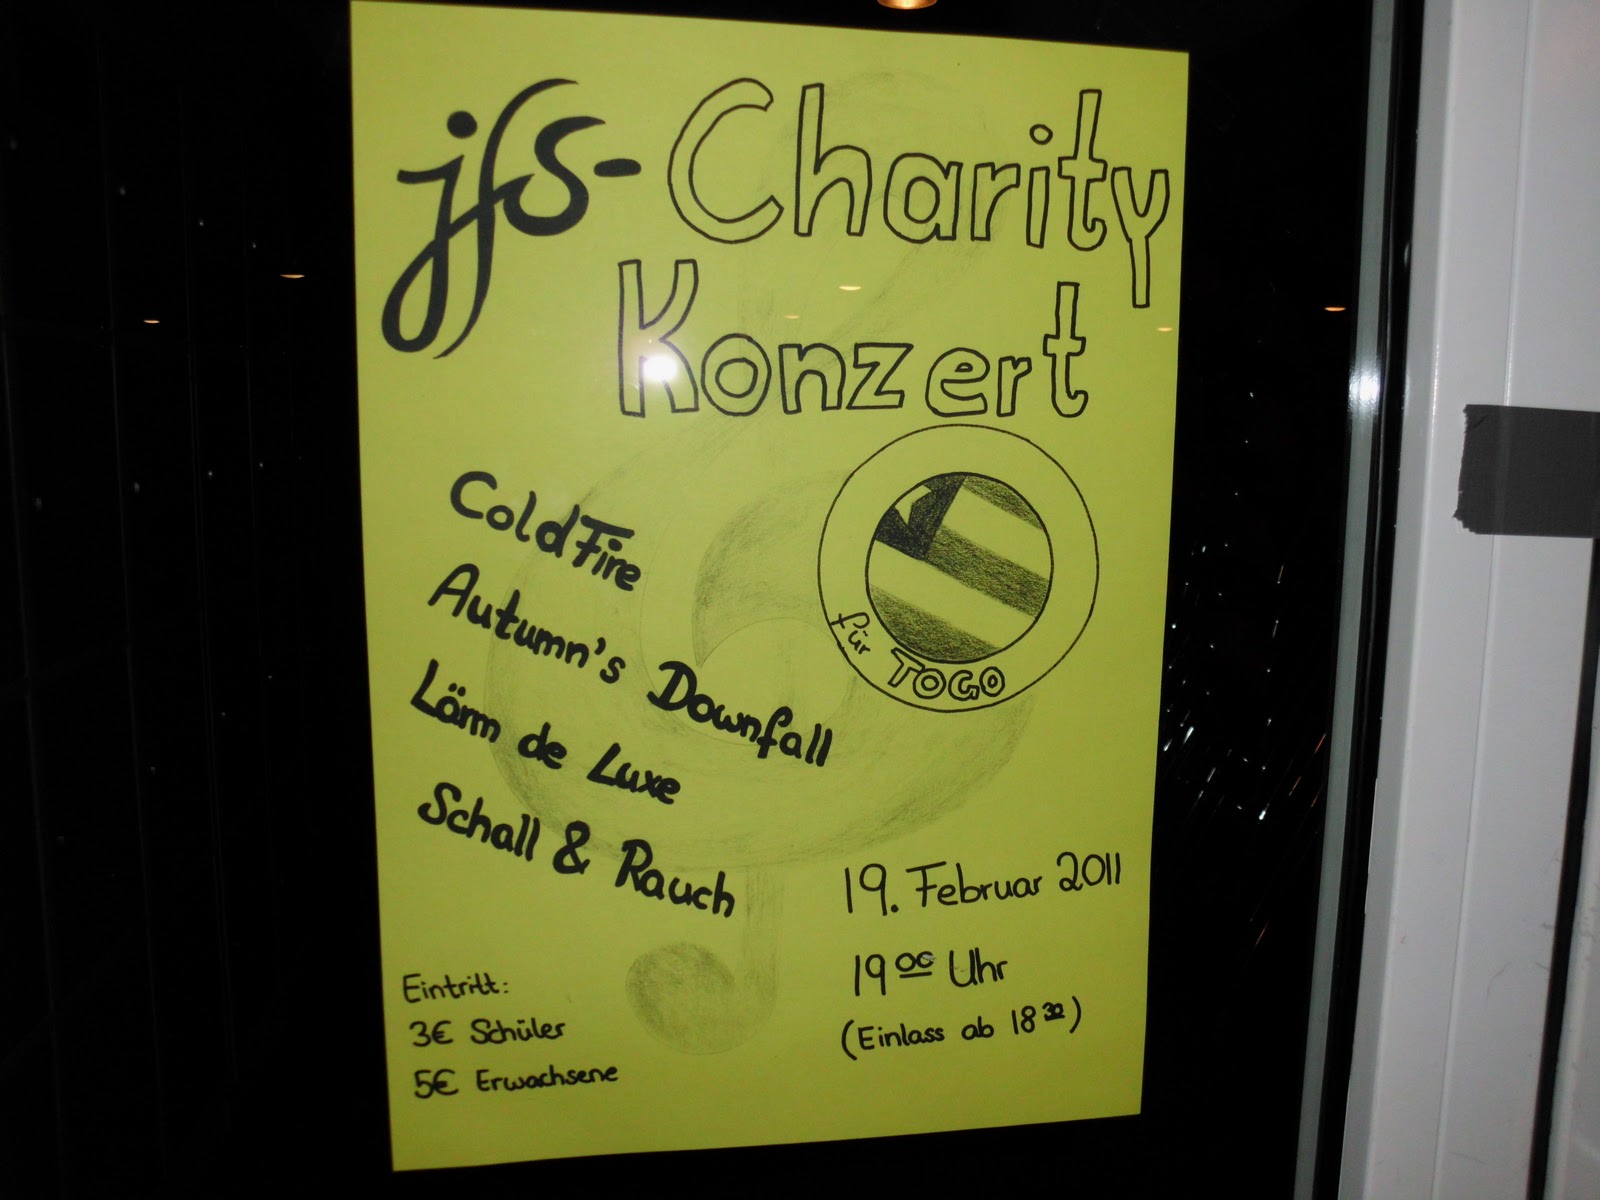 jfs-Charity
Konzert
ColdFire
Autumn's Downfall
Lärm de Luxe
Schall & Rauch
für TOGO
19. Februar 2011
19⁰⁰ Uhr
(Einlass ab 18³⁰)
Eintritt:
3€ Schüler
5€ Erwachsene